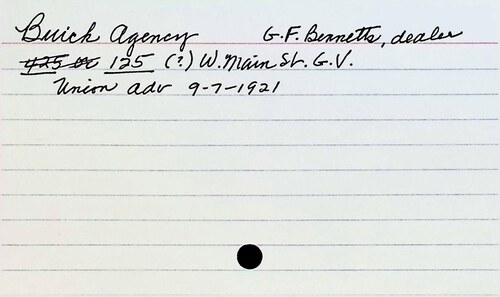 Buick Agency G.F. Bennetts, dealer
425 125 (?) W. Main St. G.V.
Union adv 9-7-1921